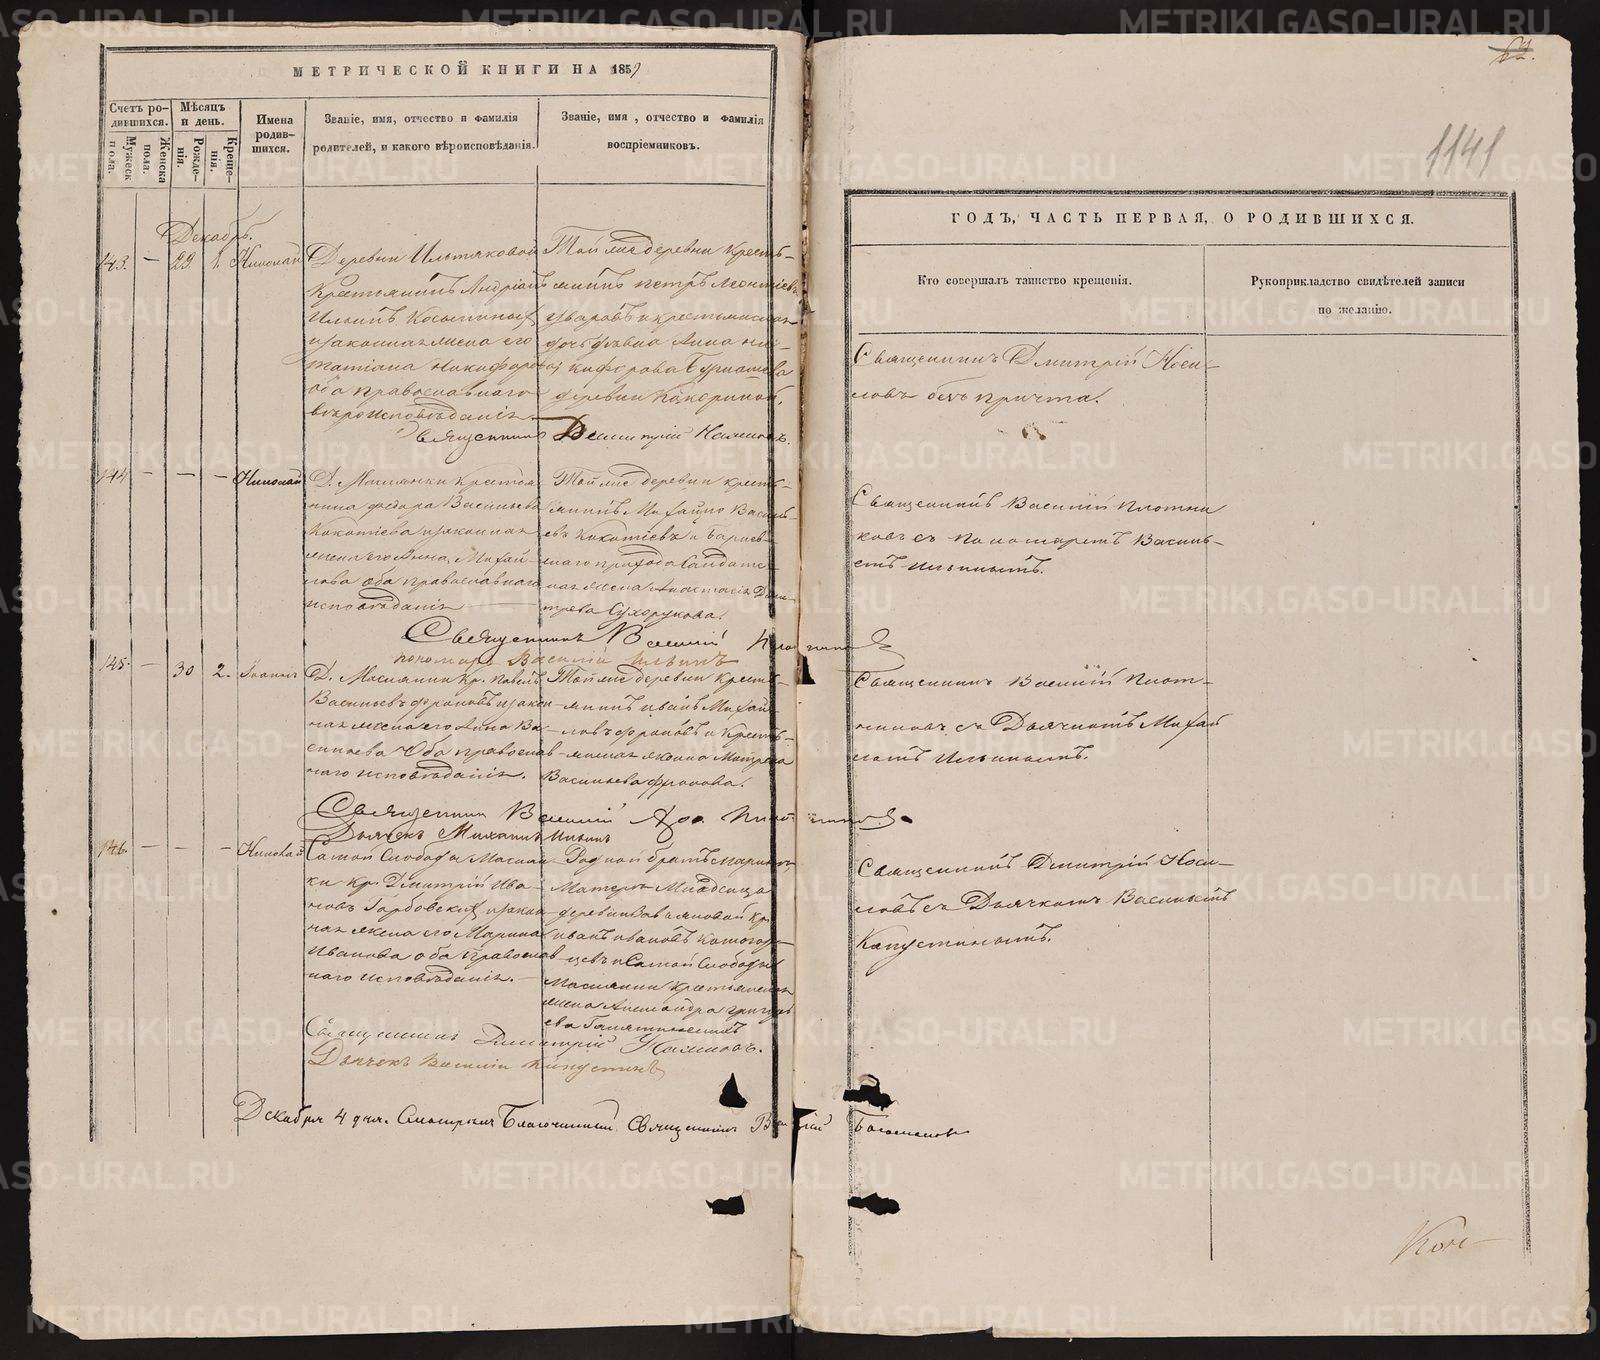 МЕТРИЧЕСКОЙ КНИГИ НА 1859
Счетъ ро-
дившихся.
Мѣсяцъ
и день.
Имена
родив-
шихся.
Званіе, имя, отчество и фамилія
родителей, и какого вѣроисповѣданія.
Званіе, имя, отчество и фамилія
воспріемниковъ.
Мужеск
пола.
Женска
пола.
Рожде-
нія.
Креще-
нія.
Декабрь.
143. — 29 1. Николай
Деревни
Крестьянинъ Андріанъ
Ильинъ
и законная жена его
Татіана Никифорова
оба православнаго
вѣроисповѣданія.
Той же деревни кресть-
янинъ Петръ Леонтіевъ
Уваровъ и крестьянская
дочь дѣвка Анна Ни-
кифорова
деревни
Священникъ Димитрій
144 — — — Николай
Д. Маслянки крестья-
нина Федора Васильева
Кокотѣева и законная
жена его Анна Михай-
лова оба православнаго
исповѣданія
Той же деревни кресть-
янинъ Михайло Василь-
евъ Кокотѣевъ и
прихода Солдатс-
кая жена Анастасія Дми-
тріева Сухорукова.
Священникъ Василій Плотниковъ
пономарь Василій Ильинъ
145. — 30 2. Іоаннъ
Д. Маслянки Кр. Павелъ
Васильевъ Фроловъ и закон-
ная жена его Анна Ва-
сильева Оба православ-
наго исповѣданія.
Той же деревни кресть-
янинъ Иванъ Михай-
ловъ Фроловъ и кресть-
янская жена Матрена
Васильева Фролова.
Священникъ Василій Плотниковъ
Дьячекъ Михаилъ Ильинъ
146. — — — Николай
Самой Слободы Маслян-
ки кр. Дмитрій Ива-
новъ Горбовскій и закон-
ная жена его Марина
Иванова оба православ-
наго исповѣданія. —
Родной братъ Марины
кр.
Иванъ Ивановъ
и Самой Слободы
Маслянки крестьянская
жена Александра Григорь-
ева
Священникъ Димитрій
Дьячекъ Василій Капустинъ
Декабря 4 дня. Смотрѣлъ Благочинный Священникъ
1141
ГОДЪ, ЧАСТЬ ПЕРВАЯ, О РОДИВШИХСЯ.
Кто совершалъ таинство крещенія.
Рукоприкладство свидѣтелей записи
по желанію.
Священникъ Дмитрій Носи-
ловъ безъ причта.
Священникъ Василій Плотни
ковъ съ Пономаремъ Василь-
емъ Ильинымъ.
Священникъ Василій Плот-
никовъ съ Дьячкомъ Михаи
ломъ Ильинымъ.
Священникъ Дмитрій Носи-
ловъ съ Дьячкомъ Василіемъ
Капустинымъ.
METRIKI.GASO-URAL.RU